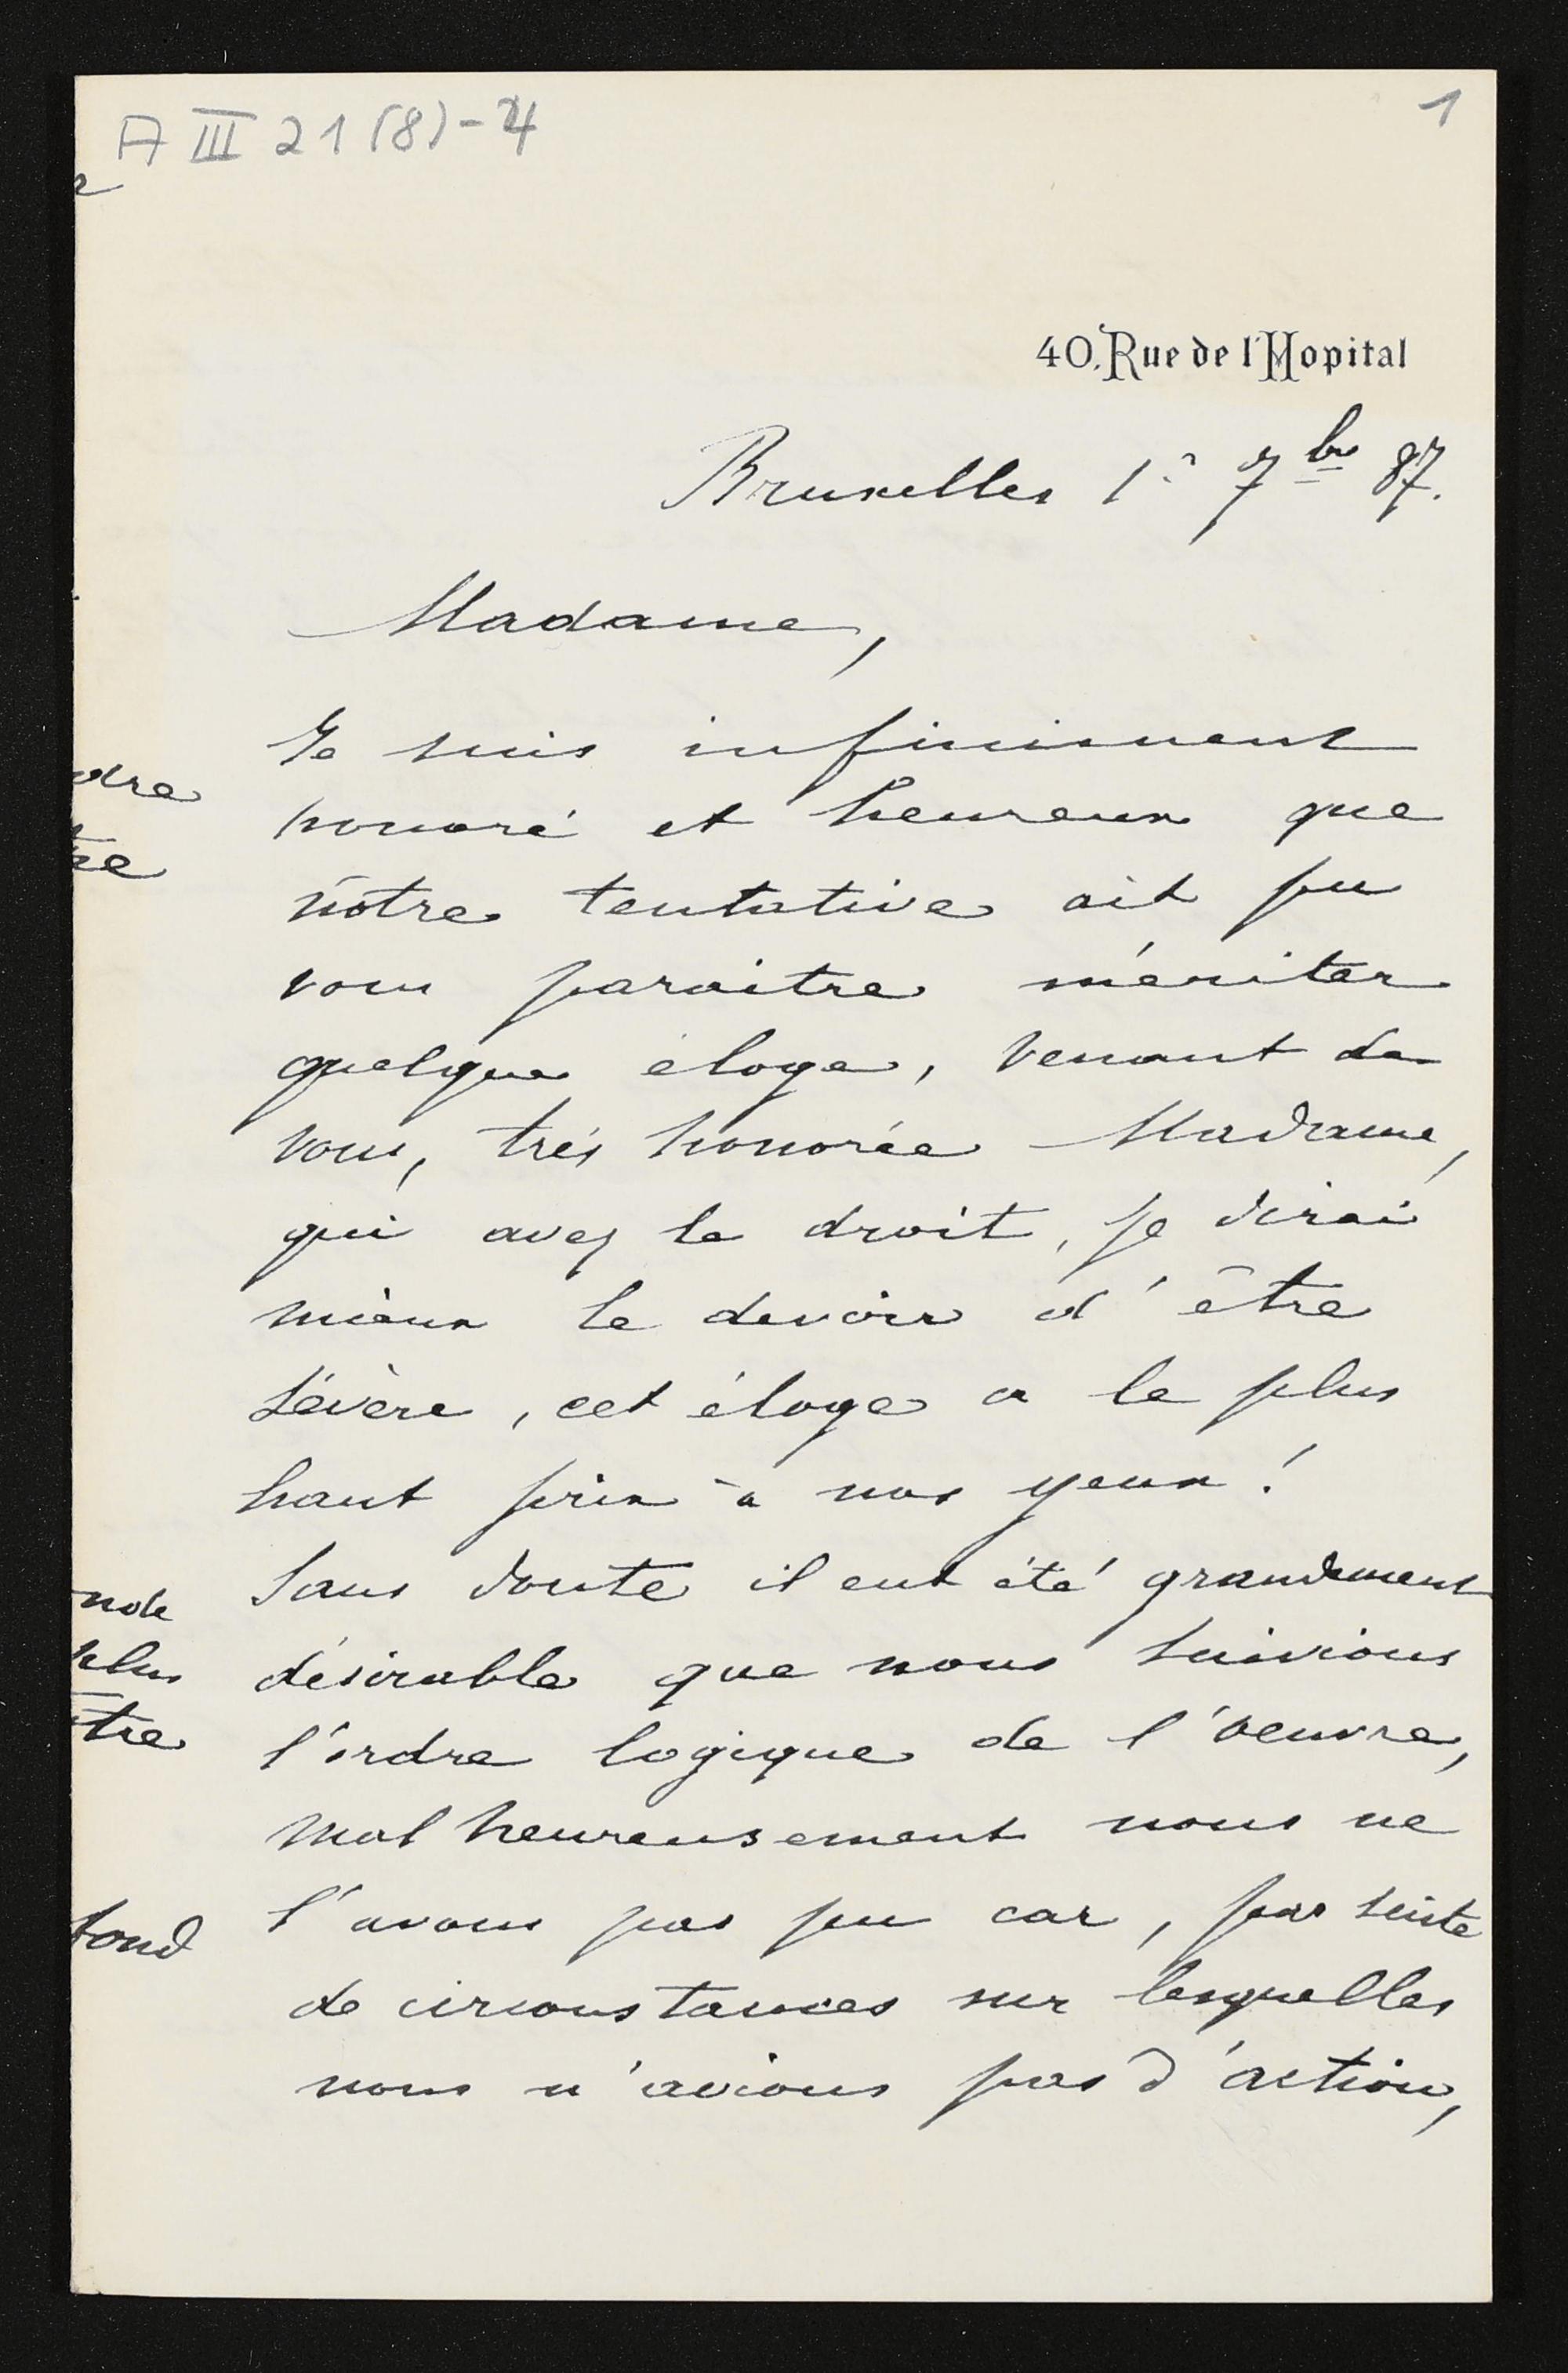 A III 21 (8)-4
1
40, Rue de l'Hopital
Bruxelles 1r 7bre 87.
Madame,
Je suis infiniment
honoré et heureux que
nôtre tentative ait pu
vous paraitre mériter
quelque éloge, venant de
vous, très honorée Madame,
qui avez le droit, je dirai
mieux le devoir d'être
sévère, cet éloge a le plus
haut prix à nos yeux!
Sans doute il eut été grandement
désirable que nous suivions
l'ordre logique de l'oeuvre,
malheureusement nous ne
l'avons pas pu car, par suite
de circonstances sur lesquelles
nous n'avions pas d'action,
dre
plus
tre